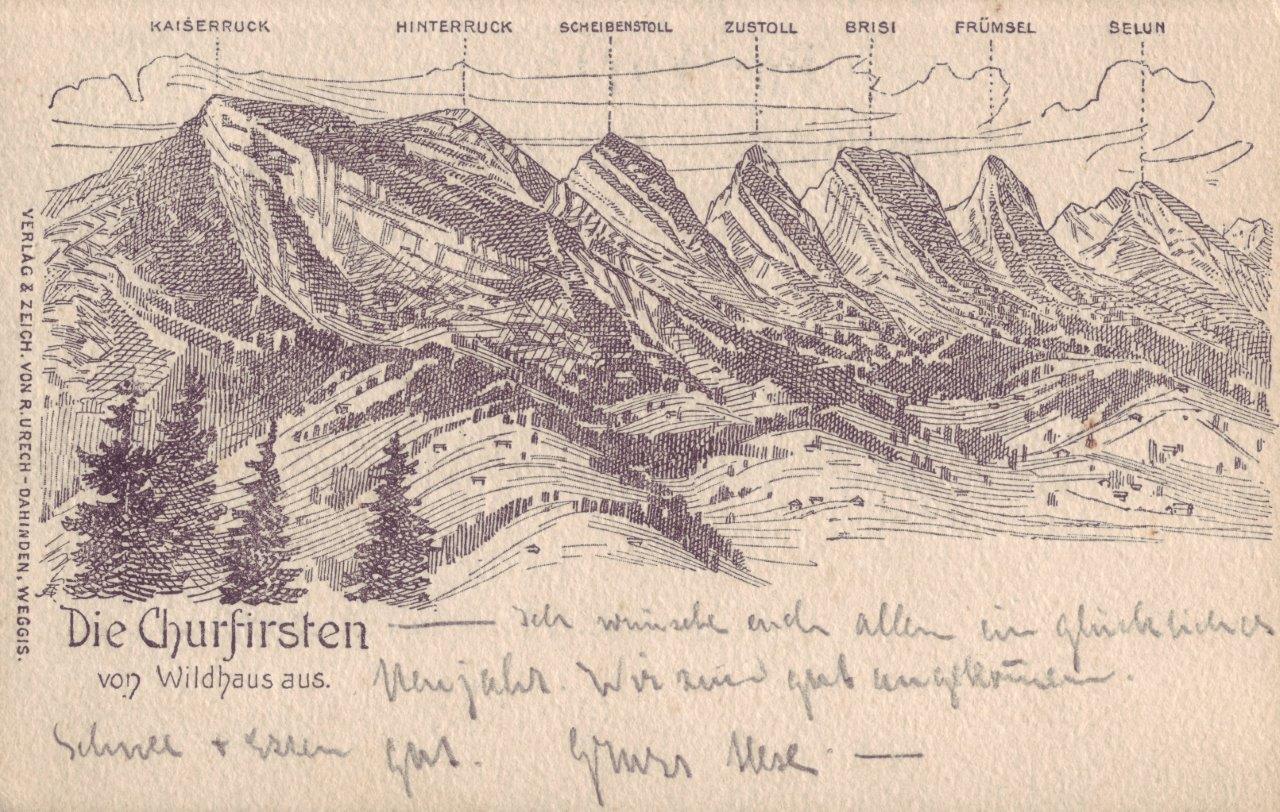 KAISERRUCK HINTERRUCK SCHEIBENSTOLL ZUSTOLL BRISI FRÜMSEL SELUN
VERLAG & ZEICH. VON R. URECH - DAHINDEN, WEGGIS.
Die Churfirsten
von Wildhaus aus.
— Ich wünsche euch allen ein glückliches
Neujahr. Wir sind gut angekom̄en.
Schnee + Essen gut. Gruss —